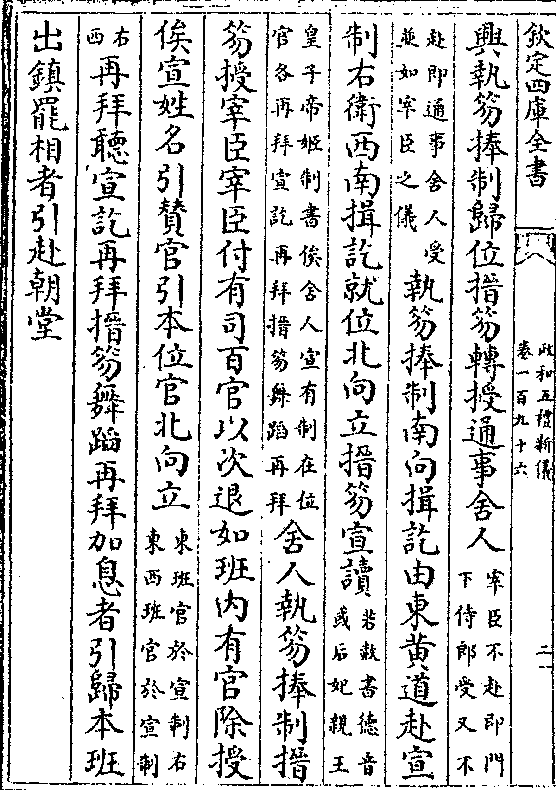 欽定四庫全書
政和五禮新儀
卷一百九十六
二
興執笏捧制歸位搢笏轉授通事舍人宰臣不赴即門下侍郎受又不
赴即通事舍人受並如宰臣之儀執笏捧制南向揖訖由東黄道赴宣
制右衛西南揖訖就位北向立搢笏宣讀若赦書德音或后妃親王
皇子帝姬制書俟舍人宣有制在位官各再拜宣訖再拜搢笏舞蹈再拜舍人執笏捧制搢
笏授宰臣宰臣付有司百官以次退如班内有官除授
俟宣姓名引贊官引本位官北向立東班官於宣制右東西班官於宣制
右西再拜聽宣訖再拜搢笏舞蹈再拜加恩者引歸本班
出鎮罷相者引赴朝堂